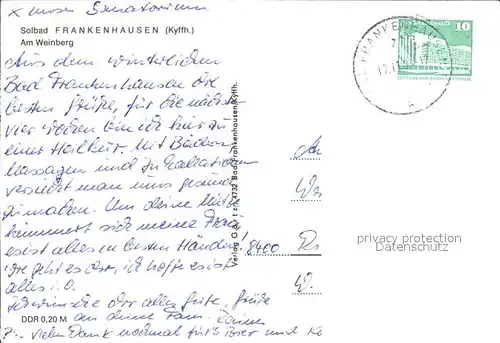 x unser Sanatorium
Solbad FRANKENHAUSEN (Kyffh.)
Am Weinberg
Aus dem winterlichen
Bad Frankenhausen die
besten Grüße, für die nächsten
vier Wochen bin ich hier zu
einer Heilkur. Mit Bädern
Massagen und Inhalationen
versucht man uns gesund
zu machen. Um deine
kümmert sich meine Frau
es ist alles in besten Händen!
Wie geht es dir, ich hoffe es ist
alles i.O.
Ich wünsche dir alles Gute, Grüße
an deine Fam.
DDR 0,20 M
Ps. vielen Dank nochmal für's Bier und
Verlag Garloff, 4732 Bad Frankenhausen/Kyffh.
FRANKENHAUSEN
10
8400
privacy protection
Datenschutz